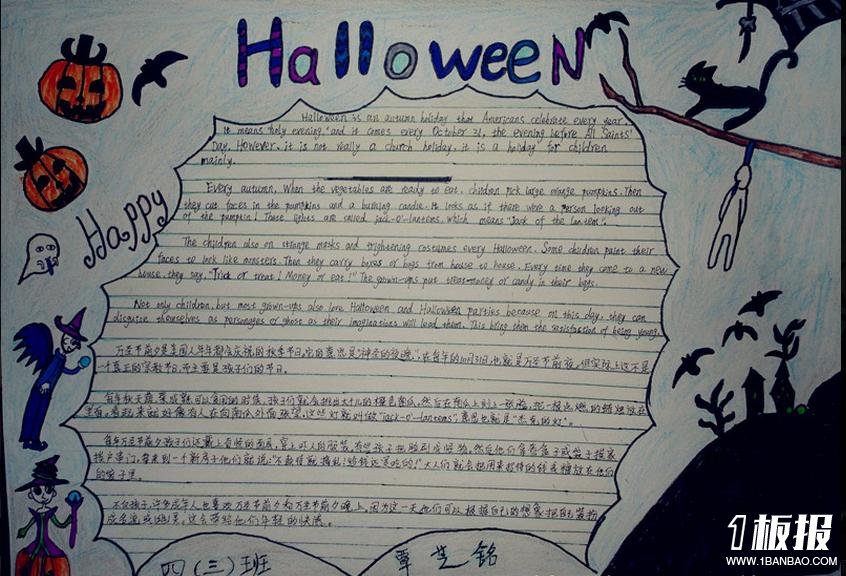 Halloween
Happy
Halloween is an autumn holiday that Americans celebrate every year.
It means "holy evening," and it comes every October 31, the evening before All Saints'
Day. However, it is not really a church holiday, it is a holiday for children
mainly.
Every autumn, When the vegetables are ready to eat, children pick large orange pumpkins. Then
they cut faces in the pumpkins and a burning candle. It looks as if there were a person looking out
of the pumpkin! These lights are called jack-o'-lantems, which means "Jack of the lantem".
The children also on strange masks and frightening costumes every Halloween. Some children paint their
faces to look like monsters. Then they carry boxes or bags from house to house. Every time they come to a new
house, they say, "Trick or treat! Money or eat!" The grown-ups put treat-money or candy in their bags.
Not only children, but most grown-ups also love Halloween and Halloween parties because on this day, they can
disguise themselves as personages or ghost as their imaginations will lead them. This bring them the satisfaction of being young.
万圣节前夕是美国人年年都会庆祝的秋季节日。它的意思是"神圣的夜晚",在每年的10月31日,也就是万圣节前夜。但实际上这不是
一个真正的宗教节日,而主要是孩子们的节日。
每年秋天蔬菜成熟可以食用的时候,孩子们就会挑出大个儿的橙色南瓜。然后在南瓜上刻上一张脸,把一根点燃的蜡烛放在
里面。看起来就好像有人在向南瓜外面张望。这些灯就叫做"jack-o'-lantems",意思也就是"杰克的灯"。
每年万圣节前夕孩子们还戴上奇怪的面具,穿上吓人的服装。有些孩子把脸刷成怪物。然后他们拿着盒子或袋子挨家
挨户串门。每来到一个新房子他们就说:"不款待就捣乱!给钱还是吃的!"大人们就会把用来招待的钱或糖放在他们
的袋子里。
不仅孩子,许多成年人也喜欢万圣节前夕和万圣节前夕晚上。因为这一天他们可以根据自己的想象把自己装扮
成名流或幽灵。这会带给他们年轻的快感。
四(三)班
覃芝铭
1板报
WWW.1BANBAO.COM